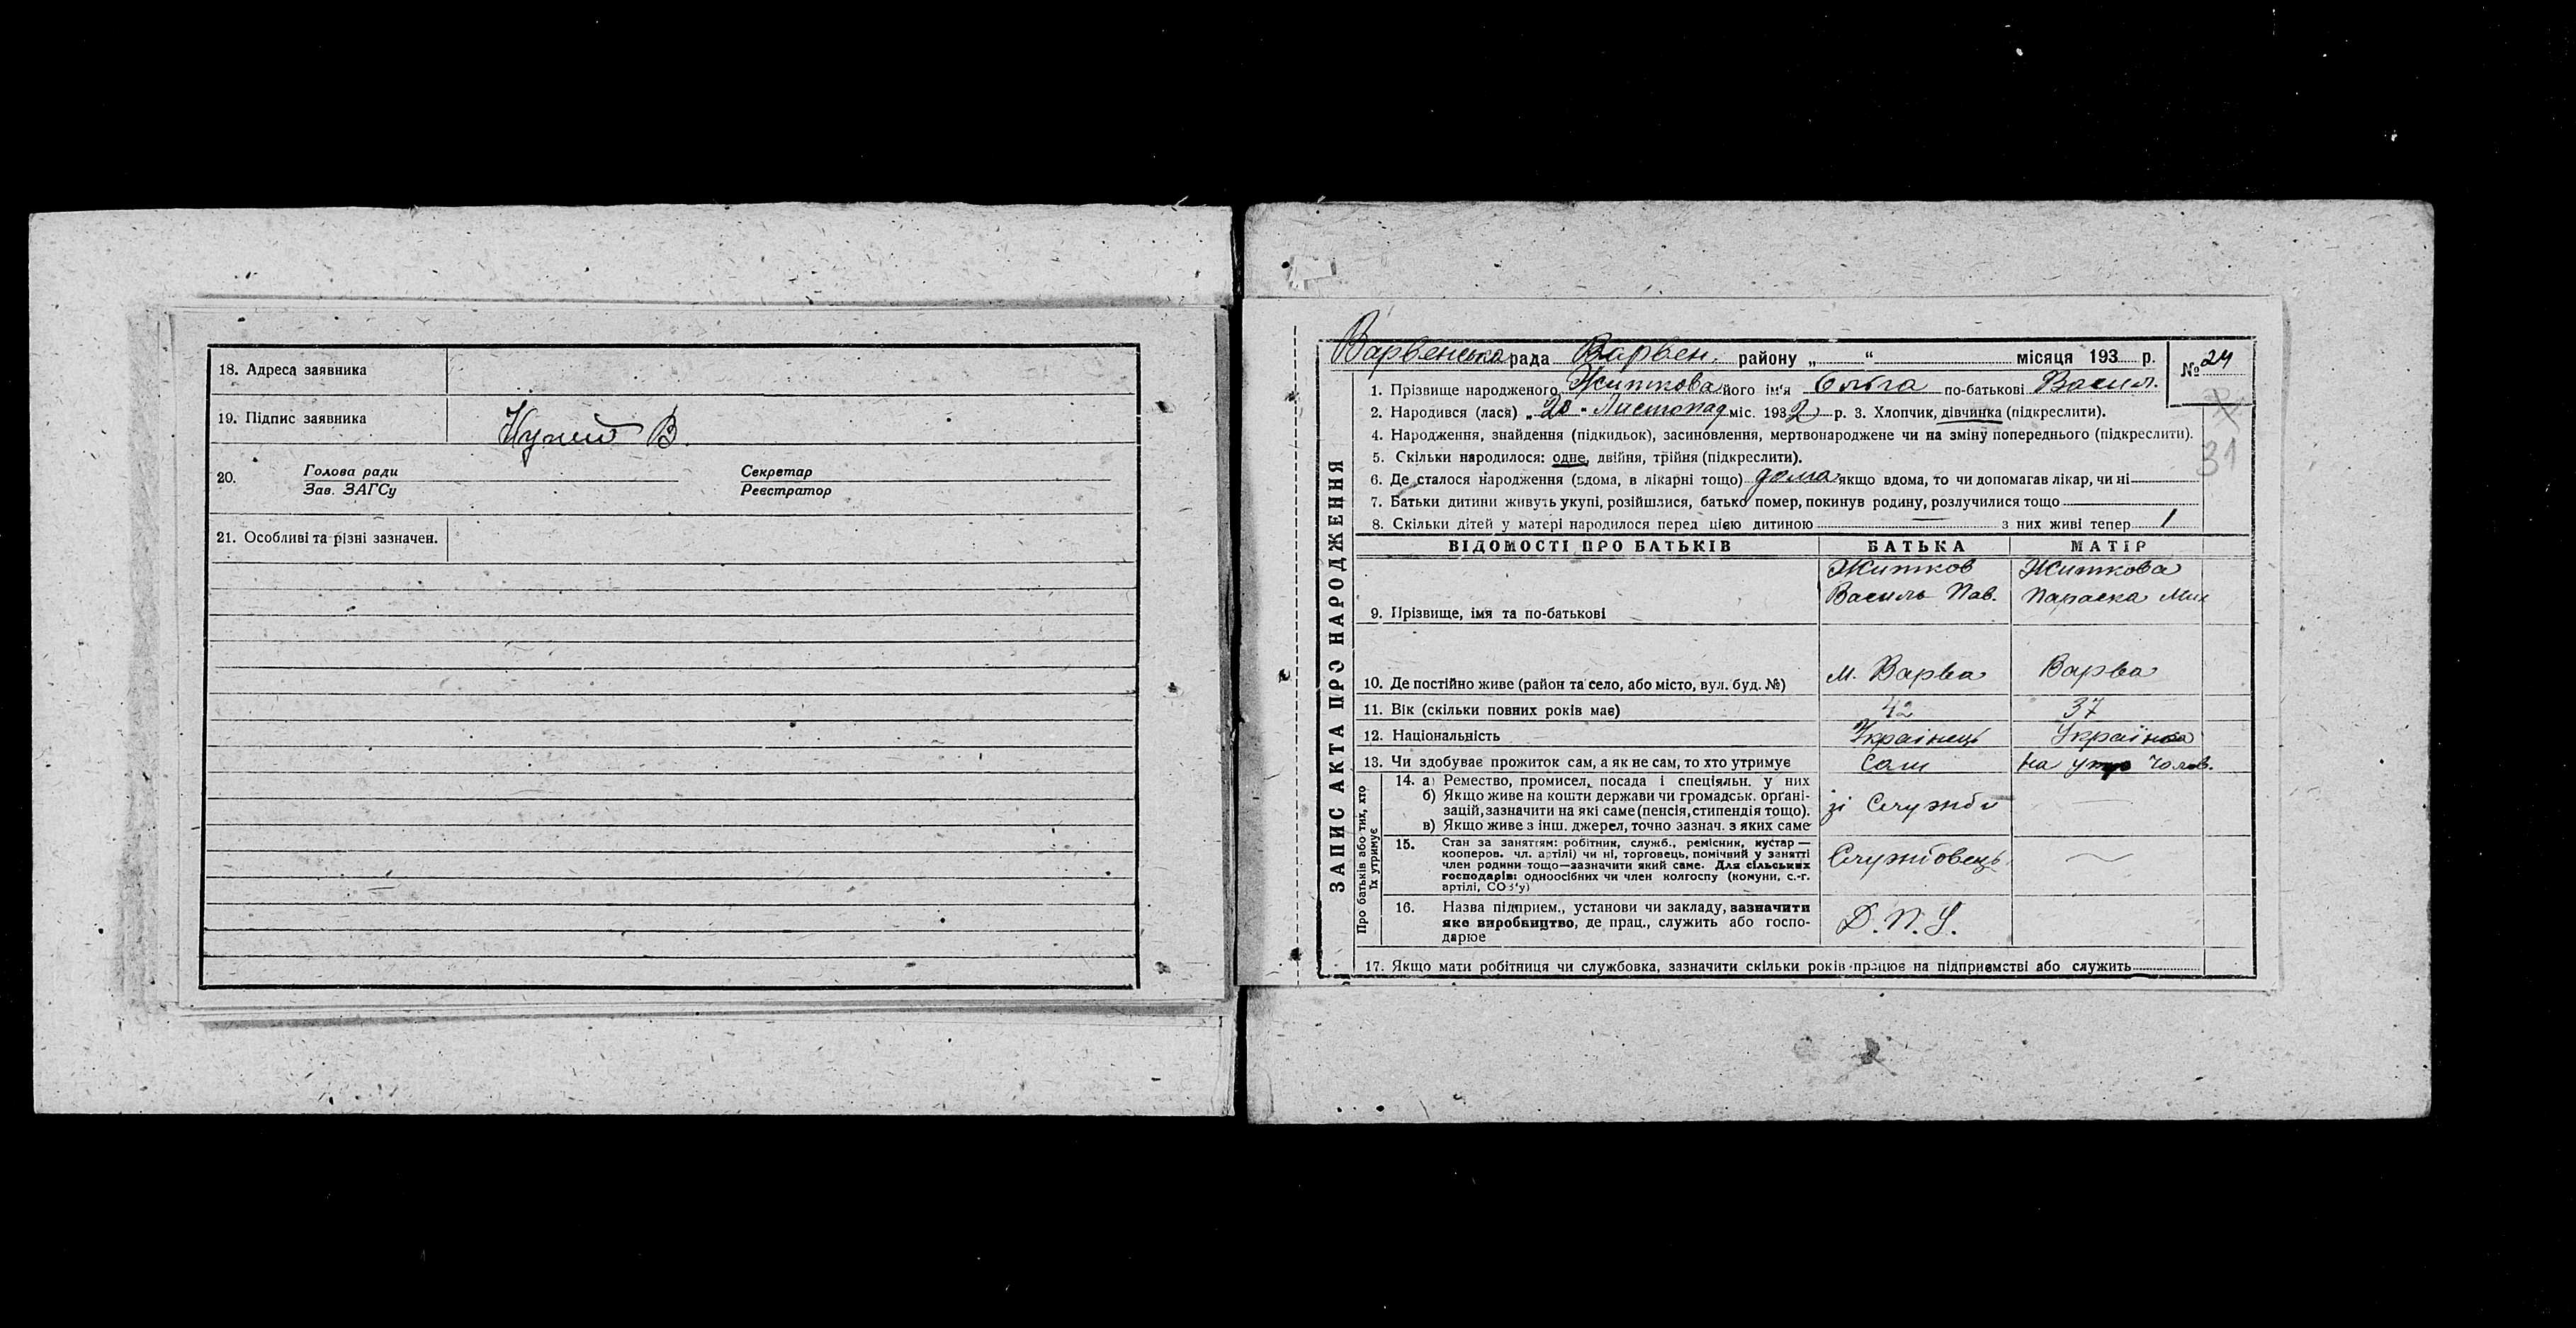 18. Адреса заявника
19. Підпис заявника
20. Голова ради Секретар
Зав. ЗАГСу Реєстратор
21. Особливі та різні зазначен.
ЗАПИС АКТА ПРО НАРОДЖЕННЯ
Варвенська рада Варвен. району „ “ місяця 193 р. № 24
1. Прізвище народженого Житкова його ім'я Ольга по-батькові Васил.
2. Народився (лася) „ 20 " Листопад міс. 1932 р. 3. Хлопчик, дівчинка (підкреслити).
4. Народження, знайдення (підкидьок), засиновлення, мертвонароджене чи на зміну попереднього (підкреслити).
31
5. Скільки народилося: одне, двійня, трійня (підкреслити).
6. Де сталося народження (вдома, в лікарні тощо) дома якщо вдома, то чи допомагав лікар, чи ні
7. Батьки дитини живуть укупі, розійшлися, батько помер, покинув родину, розлучилися тощо
8. Скільки дітей у матері народилося перед цією дитиною — з них живі тепер 1
ВІДОМОСТІ ПРО БАТЬКІВ БАТЬКА МАТІР
Житков Житкова
Василь Пав. Параска Мих
9. Прізвище, імя та по-батькові
10. Де постійно живе (район та село, або місто, вул. буд. №) м. Варва Варва
11. Вік (скільки повних років має) 42 37
12. Національність Українець Українка
13. Чи здобуває прожиток сам, а як не сам, то хто утримує Сам на утр чолов.
Про батьків або тих, хто
їх утримує
14. а) Ремество, промисел, посада і спеціяльн. у них
б) Якщо живе на кошти держави чи громадськ. орґані-
зацій, зазначити на які саме (пенсія, стипендія тощо). зі Служби —
в) Якщо живе з інш. джерел, точно зазнач. з яких саме
15. Стан за заняттям: робітник, служб., ремісник, кустар —
кооперов. чл. артілі) чи ні, торговець, помічний у занятті
член родини тощо—зазначити який саме. Для сільських Службовець —
господарів: одноосібних чи член колгоспу (комуни, с.-г.
артілі, СОЗ'у)
16. Назва підприєм., установи чи закладу, зазначити
яке виробництво, де прац., служить або госпо- Д.П.У.
дарює
17. Якщо мати робітниця чи службовка, зазначити скільки років працює на підприємстві або служить